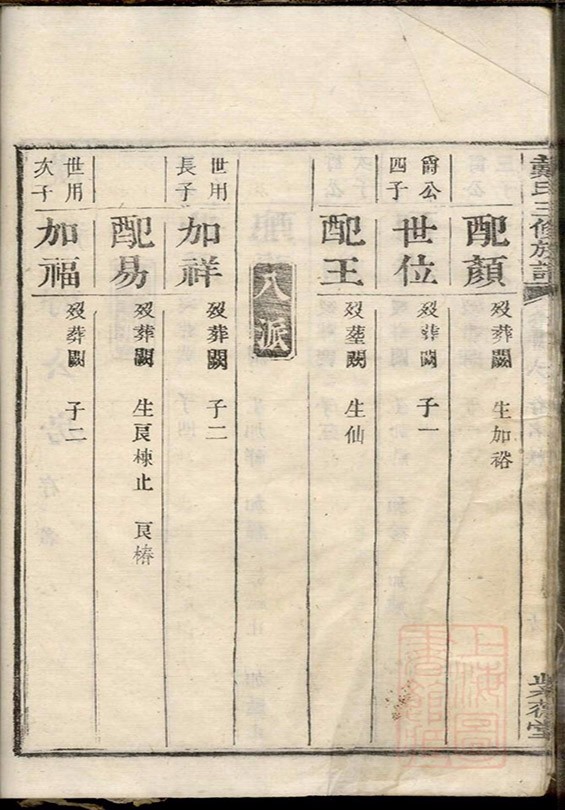 戴氏三修族譜
配顏 歿葬闕 生加裕
爵公四子
世位 歿葬闕 子一
配王 歿塟闕 生仙
八派
世用長子
加祥 歿葬闕 子二
配易 歿葬闕 生良棟止 良椿
世用次子
加福 歿葬闕 子二